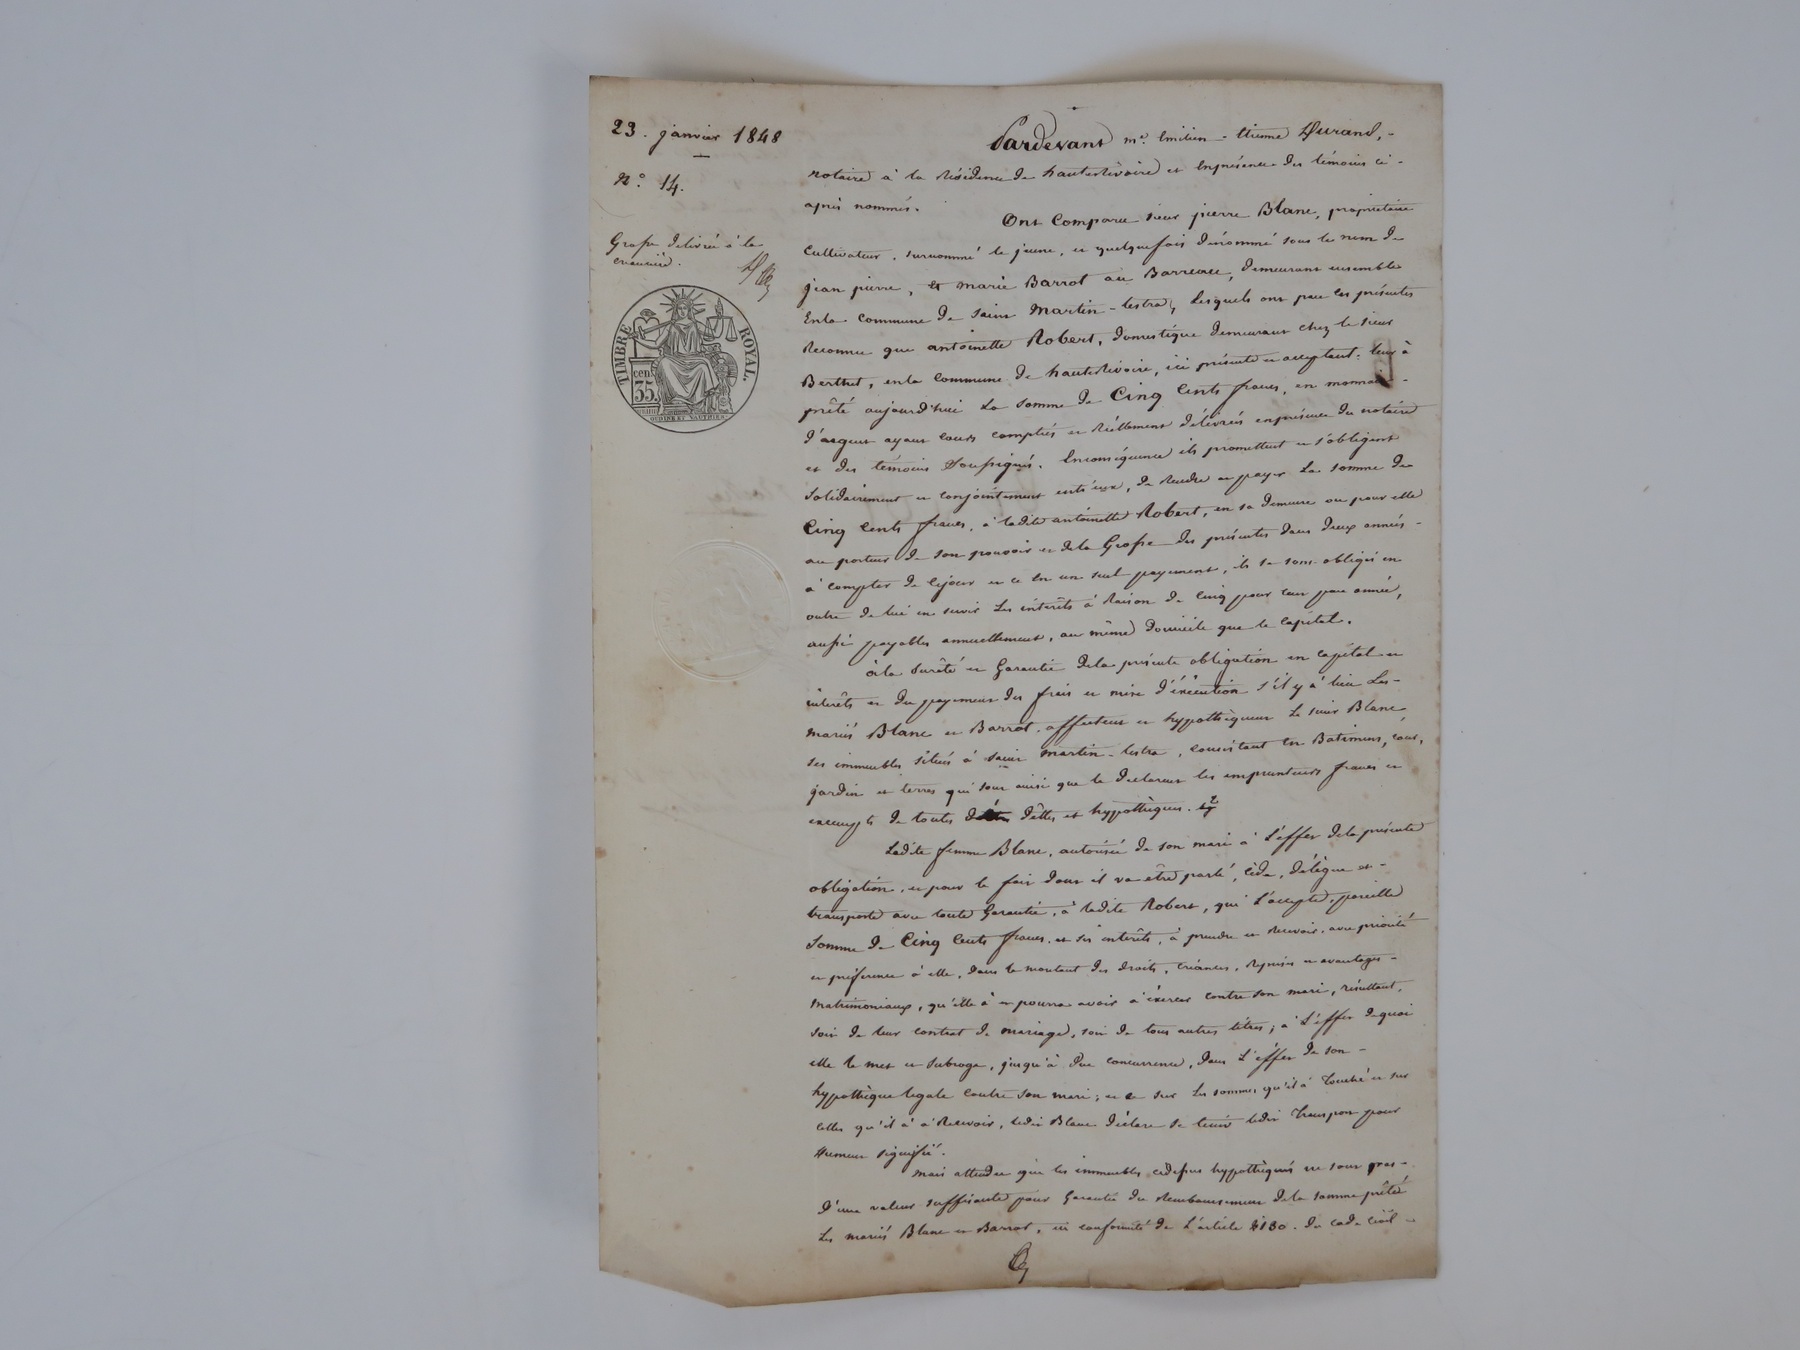 23. janvier 1848
N.° 14.
Grosse délivrée à la
créancière.
TIMBRE ROYAL.
cen.
35
Pardevant m.e Emilien-Etienne Durand,-
notaire à la Résidence de hauterivoire et En présence des témoins ci-
après nommés.
Ont Comparu sieur pierre Blanc, propriétaire
Cultivateur, surnommé le jeune, et quelquefois dénommé sous le nom de
jean pierre, et marie Barrot ou Barreau, demeurant ensemble
En la commune de saint Martin-lestra; Lesquels ont par ces présentes
Reconnu que antoinette Robert, domestique demeurant chez le sieur
Berthet, en la Commune de hauterivoire, ici présente et acceptant, leur à
prêté aujourd'hui La Somme de Cinq Cents francs, en monnaie-
d'argent ayant cours comptés et Réellement délivrés en présence du notaire
et des témoins Soussignés. En conséquence ils promettent et s'obligent
Solidairement et conjointement entr'eux, de Rendre et payer La Somme de
Cinq Cents francs, à ladite antoinette Robert, en sa demeure ou pour elle
au porteur de son pouvoir et de la Grosse des présentes dans deux années-
à compter de cejour et ce En un seul payement, ils se sont obligés en
outre de lui en servir Les intérêts à Raison de cinq pour cent par année,
aussi payables annuellement, au même domicile que le capital.
à la Sureté et Garantie de la présente obligation en capital et
intérêts et du payement des frais et mise d'éxécution s'il y à lieu Les-
mariés Blanc et Barrot, affectent et hypothèquent Le sieur Blanc,
ses immeubles situés à saint Martin-lestra, consistant En Batiments, cour,
jardin et terres qui sont ainsi que le déclarent les emprunteurs francs et
exempts de toutes dêttes et hypothèques.
Ladite femme Blanc, autorisée de son mari à L'effet de la présente
obligation, et pour le fait dont il va être parlé, cède, délègue et-
transporte avec toute Garantie, à ladite Robert, qui L'accepte, pareille
Somme de Cinq Cents francs, et ses intérêts, à prendre et Recevoir, avec priorité
et préférence à elle, dans le montant des droits, Créances, Reprises et avantages-
Matrimoniaux, qu'elle à et pourra avoir à éxercer contre son mari, résultant,
soit de leur contrat de mariage, soit de tous autres titres; à L'effet de quoi
elle le met et Subroge, jusqu'à due concurrence, dans L'effet de son-
hypothèque légale contre son mari; et ce sur Les sommes qu'il à Touché et sur
Celles qu'il à à Recevoir, ledit Blanc déclare se tenir ledit Transport pour
dûment signifié.
Mais attendu que les immeubles cidessus hypothèqués ne sont pas-
d'une valeur suffisante pour Garantie du Remboursement de la somme prêtée
Les mariés Blanc et Barrot, en conformité de L'article 2130. du code Civil